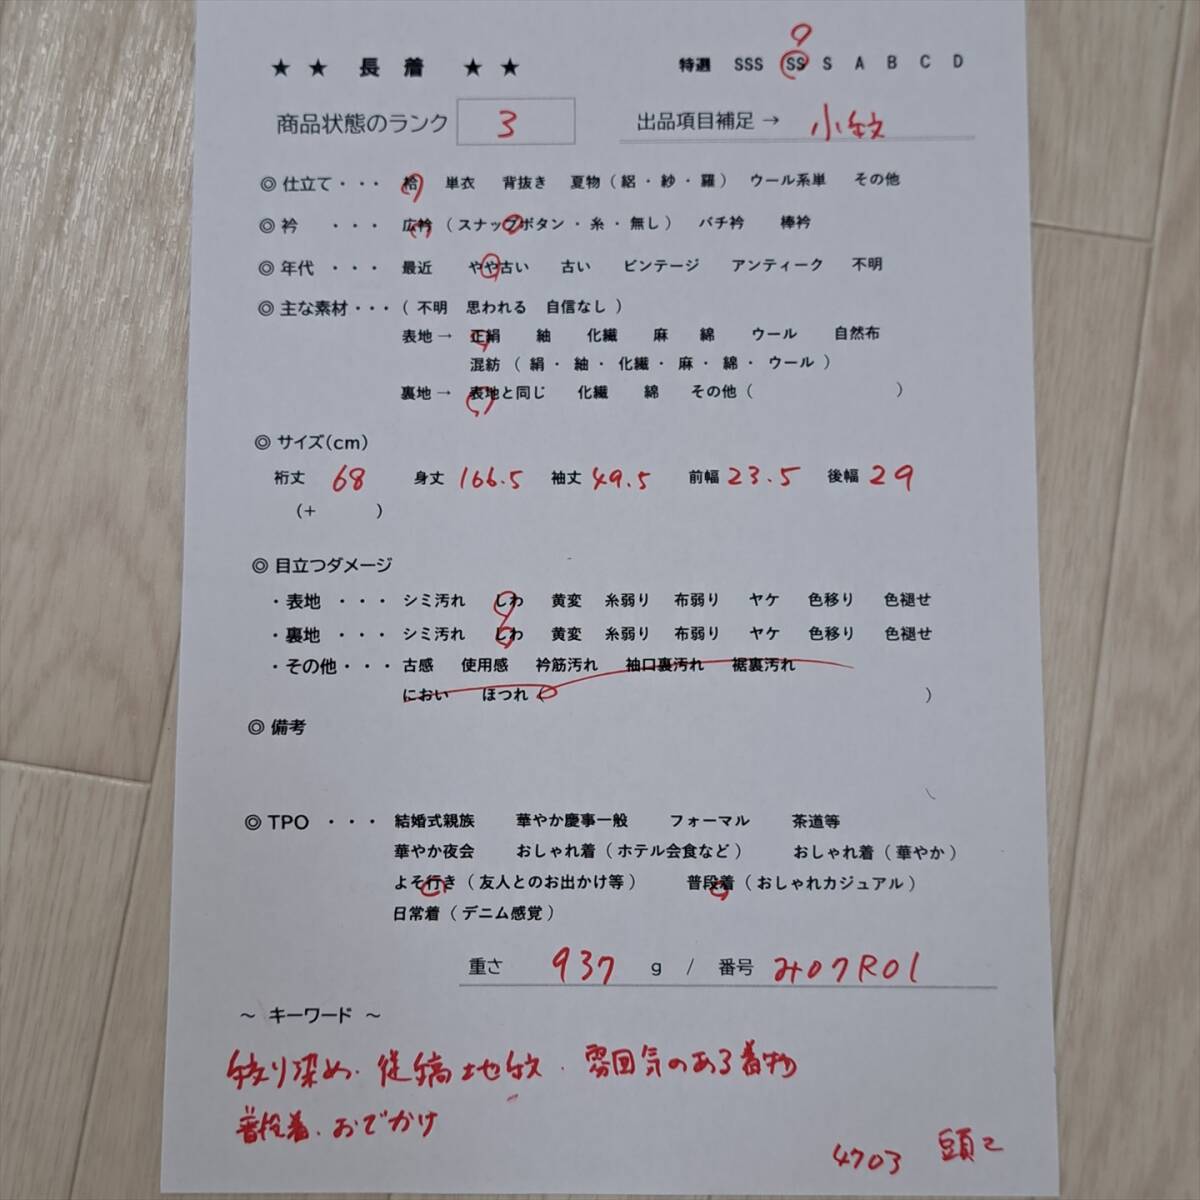 ★ ★ 長 着 ★ ★ 特選 SSS SS S A B C D
商品状態のランク 3 出品項目補足 → 小紋
◎ 仕立て・・・ 袷 単衣 背抜き 夏物 ( 絽 ・ 紗 ・ 羅 ) ウール系単 その他
◎ 衿 ・・・ 広衿 ( スナップボタン ・ 糸 ・ 無し ) バチ衿 棒衿
◎ 年代 ・・・ 最近 やや古い 古い ビンテージ アンティーク 不明
◎ 主な素材・・・ ( 不明 思われる 自信なし )
表地 → 正絹 紬 化繊 麻 綿 ウール 自然布
混紡 ( 絹 ・ 紬 ・ 化繊 ・ 麻 ・ 綿 ・ ウール )
裏地 → 表地と同じ 化繊 綿 その他 ( )
◎ サイズ(cm)
裄丈 68 身丈 166.5 袖丈 49.5 前幅 23.5 後幅 29
(+ )
◎ 目立つダメージ
・表地 ・・・ シミ汚れ しわ 黄変 糸弱り 布弱り ヤケ 色移り 色褪せ
・裏地 ・・・ シミ汚れ しわ 黄変 糸弱り 布弱り ヤケ 色移り 色褪せ
・その他・・・ 古感 使用感 衿筋汚れ 袖口裏汚れ 裾裏汚れ
におい ほつれ ( )
◎ 備考
◎ TPO ・・・ 結婚式親族 華やか慶事一般 フォーマル 茶道等
華やか夜会 おしゃれ着 ( ホテル会食など ) おしゃれ着 ( 華やか )
よそ行き ( 友人とのお出かけ等 ) 普段着 ( おしゃれカジュアル )
日常着 ( デニム感覚 )
重さ 937 g / 番号 み07R01
～ キーワード ～
絞り染め・縦縞地紋・雰囲気のある着物
普段着・おでかけ
4703